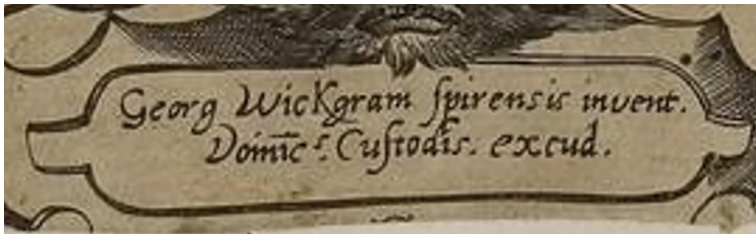 Georg Wickgram ſpirensis invent.
Dominic⁹. Cuſtodis. excud.